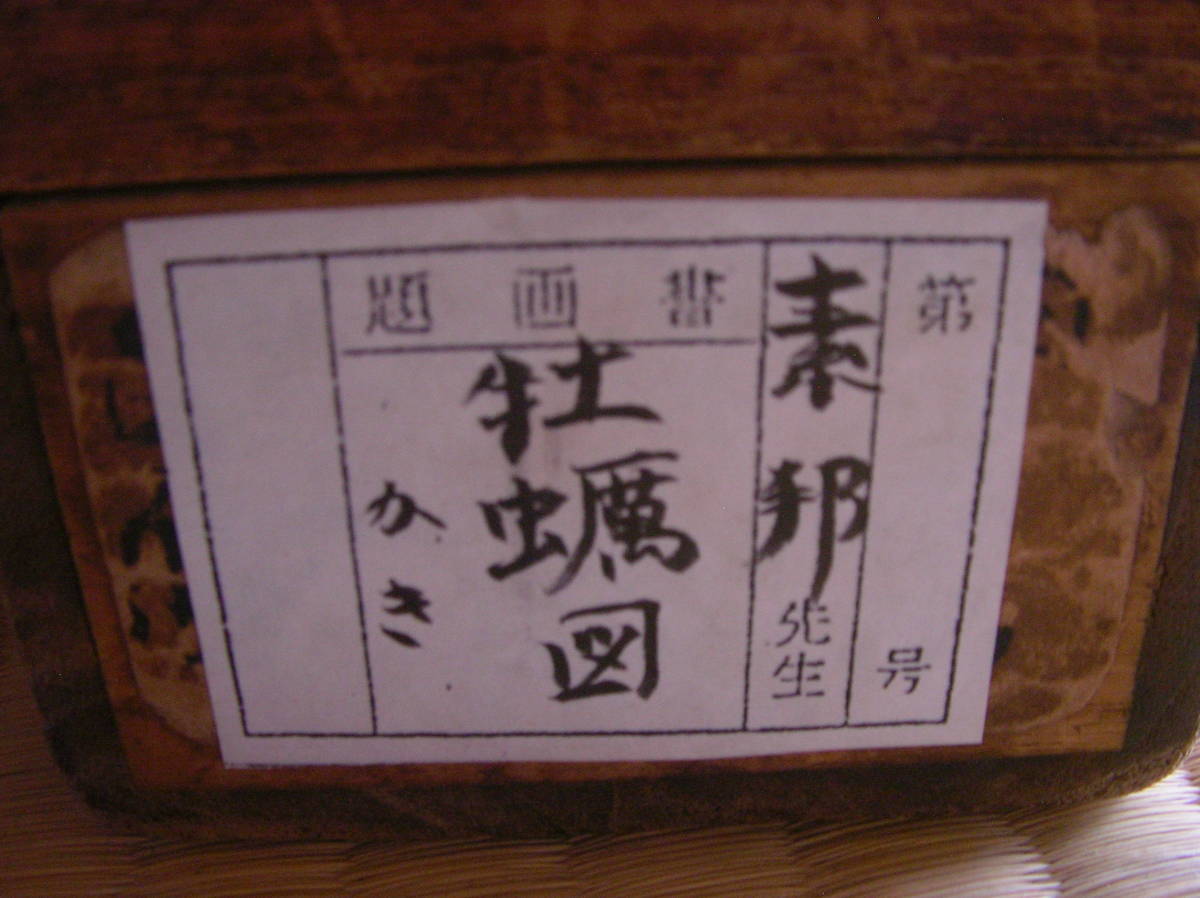 第 号
素邦先生
書画題
牡蠣図
かき